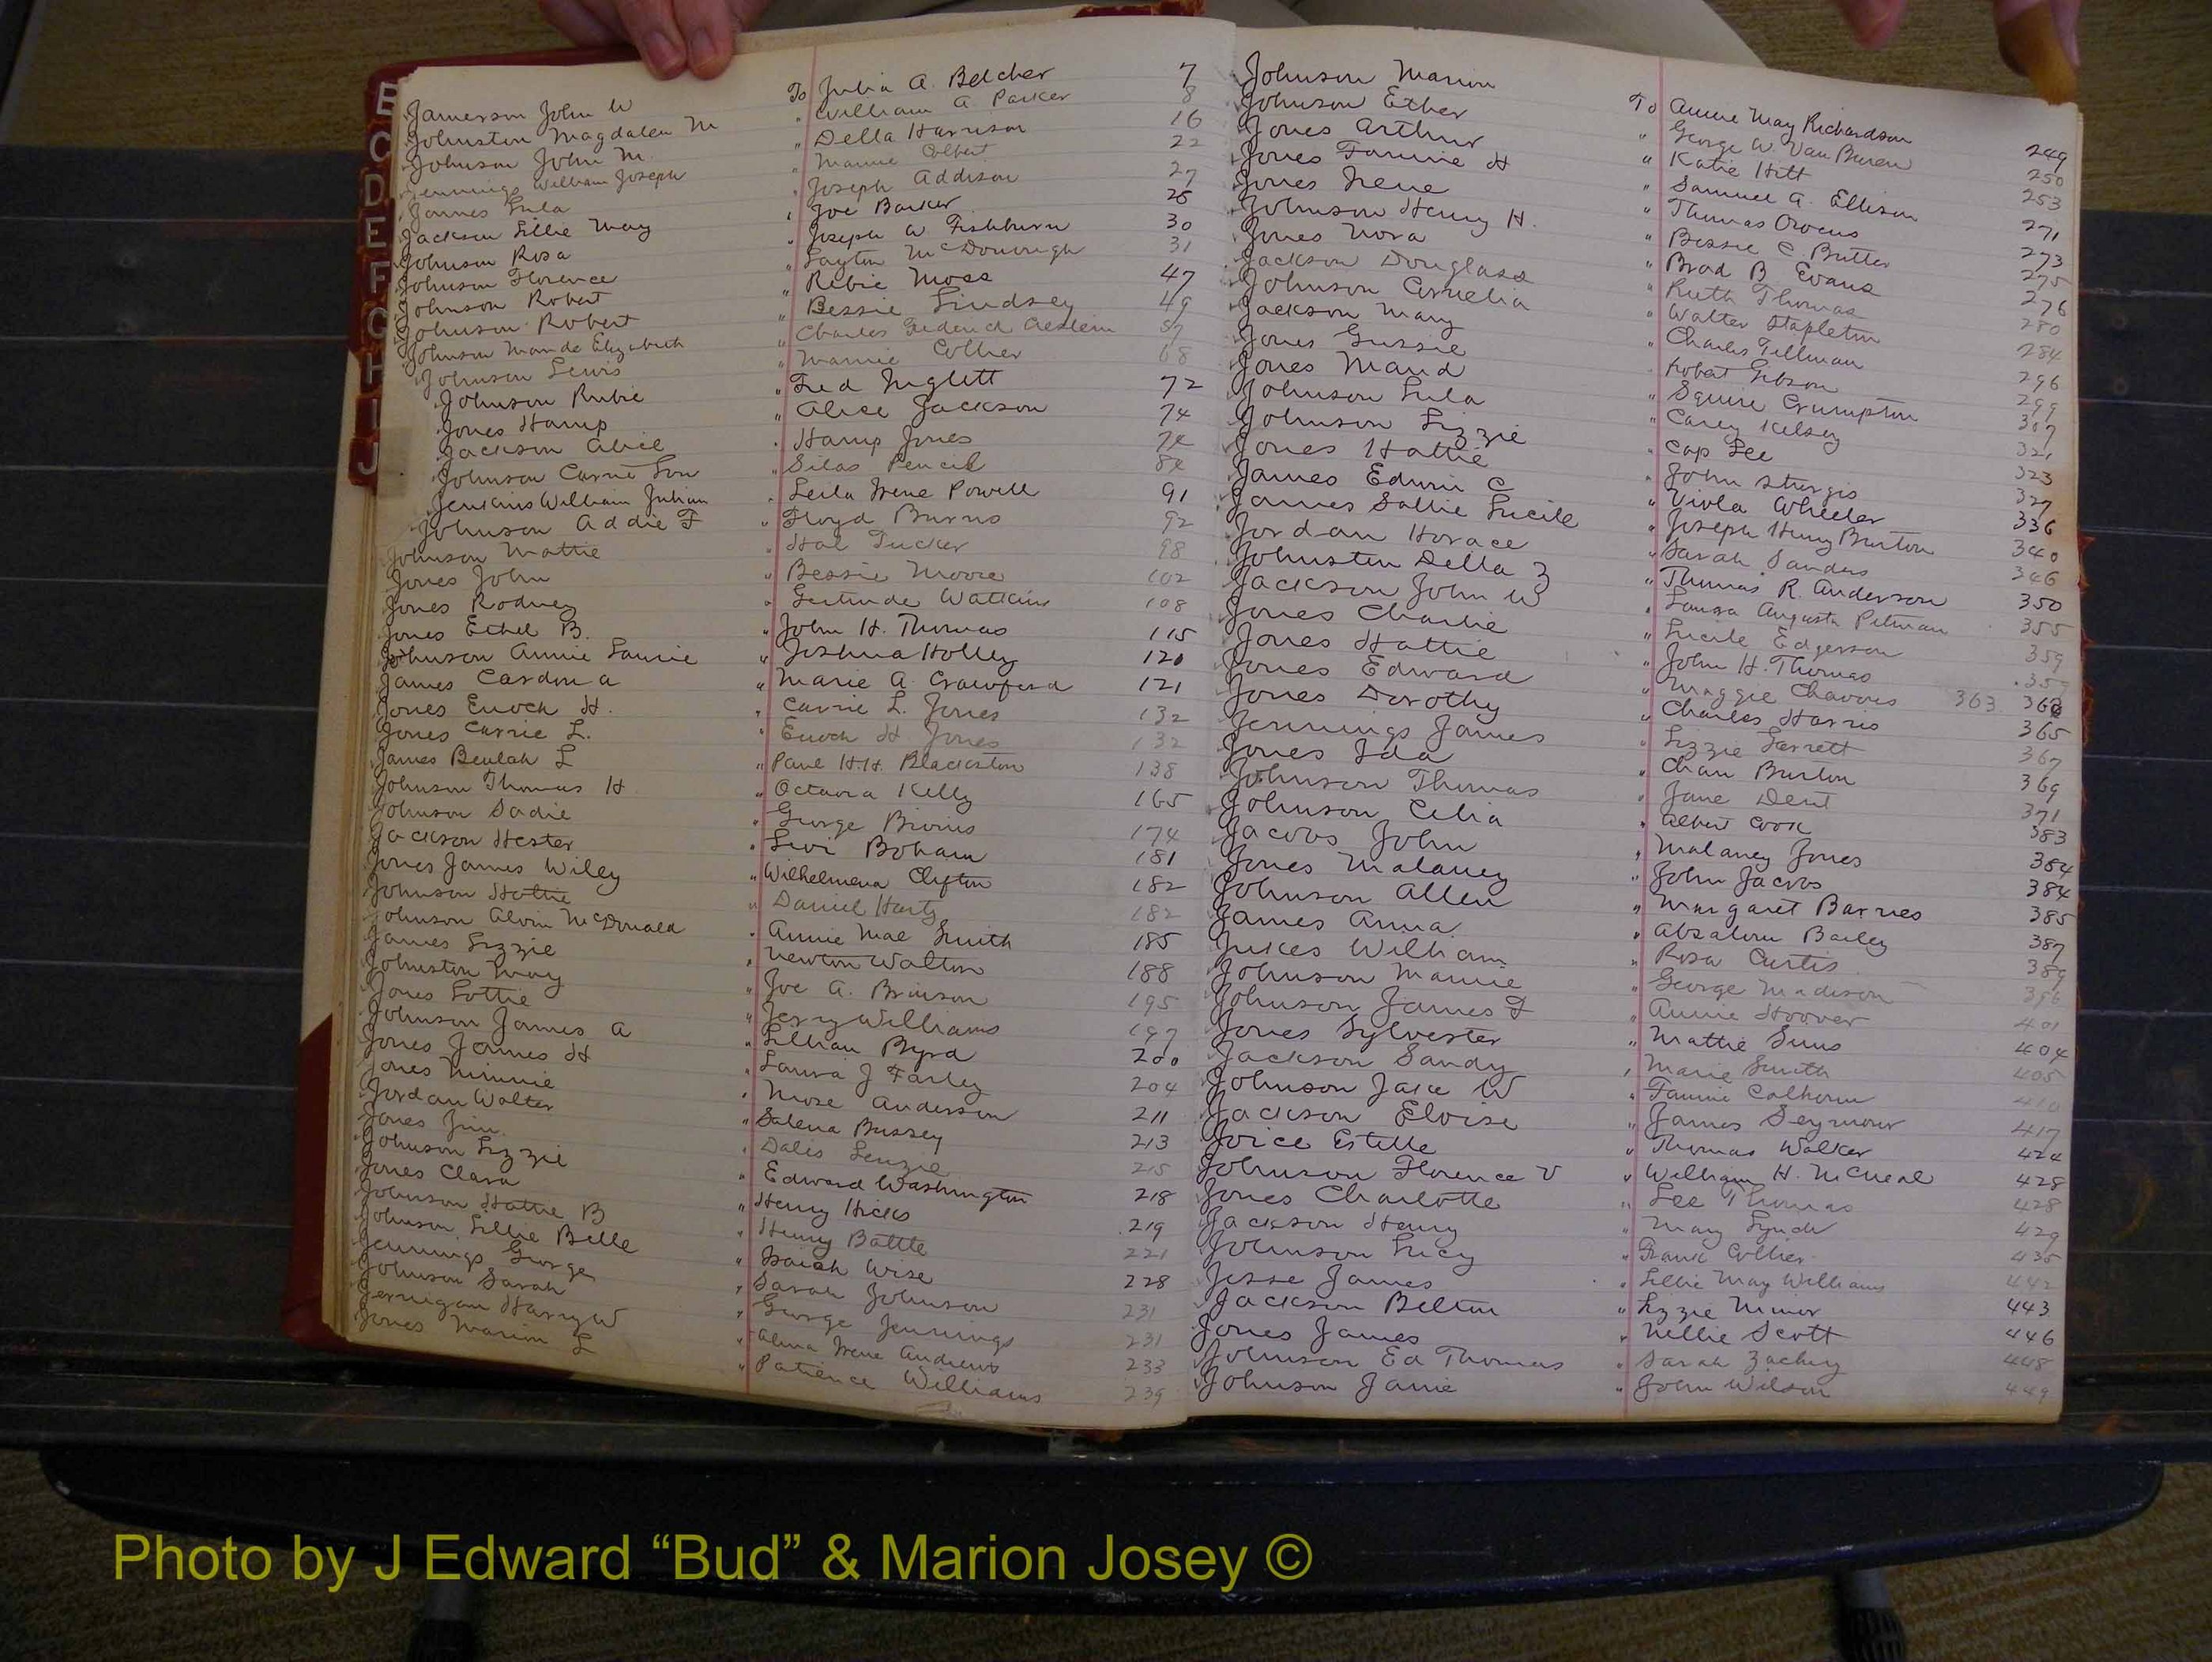 B
C
D
E
F
G
H
I
J
Jamerson John W To Julia A. Belcher 7
Johnston Magdalen M " William A Parker 8
Johnson John M. " Della Harrison 16
Jennings William Joseph " Mamie Colbert 22
Joannes Lula " Joseph Addison 27
Jackson Lillie May " Joe Barker 28
Johnson Rosa " Joseph W Fishburn 30
Johnson Florence " Layton McDonough 31
Johnson Robert " Rebie Moss 47
Johnson Robert " Bessie Lindsey 49
Johnson Maude Elizabeth " Charles Frederick 57
Johnson Lewis " Mamie Collier 68
Johnson Rubie " Fred Inglett 72
Jones Hamp " Alice Jackson 74
Jackson Alice " Hamp Jones 74
Johnson Carrie Lou " Silas Pencil 84
Jenkins William Julian " Leila Irene Powell 91
Johnson Addie F " Floyd Burns 92
Johnson Mattie " Hal Tucker 98
Jones John " Bessie Moore 102
Jones Rodney " Gertrude Watkins 108
Jones Ethel B. " John H. Thomas 115
Johnson Annie Laurie " Joshua Holley 120
James Cardonia " Marie A. Crawford 121
Jones Enoch H. " Carrie L. Jones 132
Jones Carrie L. " Enoch H Jones 132
James Beulah L " Paul H.H. Blackston 138
Johnson Thomas H " Octavia Kelly 165
Johnson Sadie " George Bivins 174
Jackson Hester " Levi Boham 181
Jones James Wiley " Wilhelmena Clifton 182
Johnson Hattie " Daniel Harty 182
Johnson Alvin McDonald " Annie Mae Smith 185
James Lizzie " Newton Walton 188
Johnston May " Joe A. Brinson 195
Jones Lottie " Jerry Williams 197
Johnson James A " Lillian Byrd 200
Jones James H " Laura J Farley 204
Jones Minnie " Mose Anderson 211
Jordan Walter " Salena Bussey 213
Jones Jim. " Dalis Lenzie 215
Johnson Lizzie " Edward Washington 218
Jones Clara " Henry Hicks 219
Johnson Hattie B " Henry Battle 221
Johnson Lillie Belle " Isaiah Wise 228
Jennings George " Sarah Johnson 231
Johnson Sarah " George Jennings 231
Jernigan Harry W " Alma Irene Andrews 233
Jones Marion L " Patience Williams 239
Johnson Marion To Annie May Richardson 249
Johnson Ether " George W. Van Buren 250
Jones Arthur " Katie Hitt 253
Jones Fannie H " Samuel A. Ellison 271
Jones Irene " Thomas Owens 273
Johnson Henry H. " Bessie C Butler 275
Jones Nora " Brad B Evans 276
Jackson Douglass " Ruth Thomas 280
Johnson Cornelia " Walter Stapleton 284
Jackson Mary " Charles Tillman 296
Jones Gussie " Robert Gibson 299
Jones Maud " Squire Crumpton 307
Johnson Lula " Carey Kelsey 321
Johnson Lizzie " Cap Lee 323
Jones Hattie " John Sturgis 327
James Edwin C " Viola Wheeler 336
James Sallie Lucile " Joseph Henry Burton 340
Jordan Horace " Sarah Sanders 346
Johnston Della Z " Thomas R. Anderson 350
Jackson John W " Laura Augusta Pitman 355
Jones Charlie " Lucile Edgerson 359
Jones Hattie " John H. Thomas
Jones Edward " Maggie Chavous 363
Jones Dorothy " Charles Harris 365
Jennings James " Lizzie Garrett 367
Jones Ida " Chan Burton 369
Johnson Thomas " Jane Dent 371
Johnson Celia " Albert Cook 383
Jacobs John " Malaney Jones 384
Jones Malaney " John Jacobs 384
Johnson Allen " Margaret Barnes 385
James Anna " Absalom Bailey 387
Jukes William " Rosa Curtis 389
Johnson Mamie " George Madison 396
Johnson James F " Annie Hoover 401
Jones Sylvester " Mattie Sims 404
Jackson Sandy " Marie Smith 405
Johnson Jake W " Fannie Calhoun 410
Jackson Eloise " James Seymour 417
Joice Estelle " Thomas Walker 424
Johnson Florence V " William H. McNeal 428
Jones Charlotte " Lee Thomas 428
Jackson Henry " Mary Lynch 429
Johnson Lucy " Frank Collier 435
Jesse James " Lillie May Williams 442
Jackson Belton " Lizzie Minor 443
Jones James " Nellie Scott 446
Johnson Ed Thomas " Sarah Zachry 448
Johnson Janie " John Wilson 449
Photo by J Edward “Bud” & Marion Josey ©